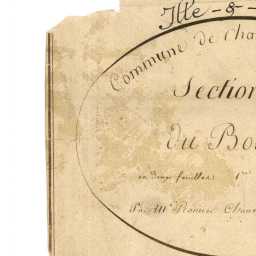 Ille-&-
Commune de Cha
Section
du Bo
en deux feuilles. 1re
Par Mr